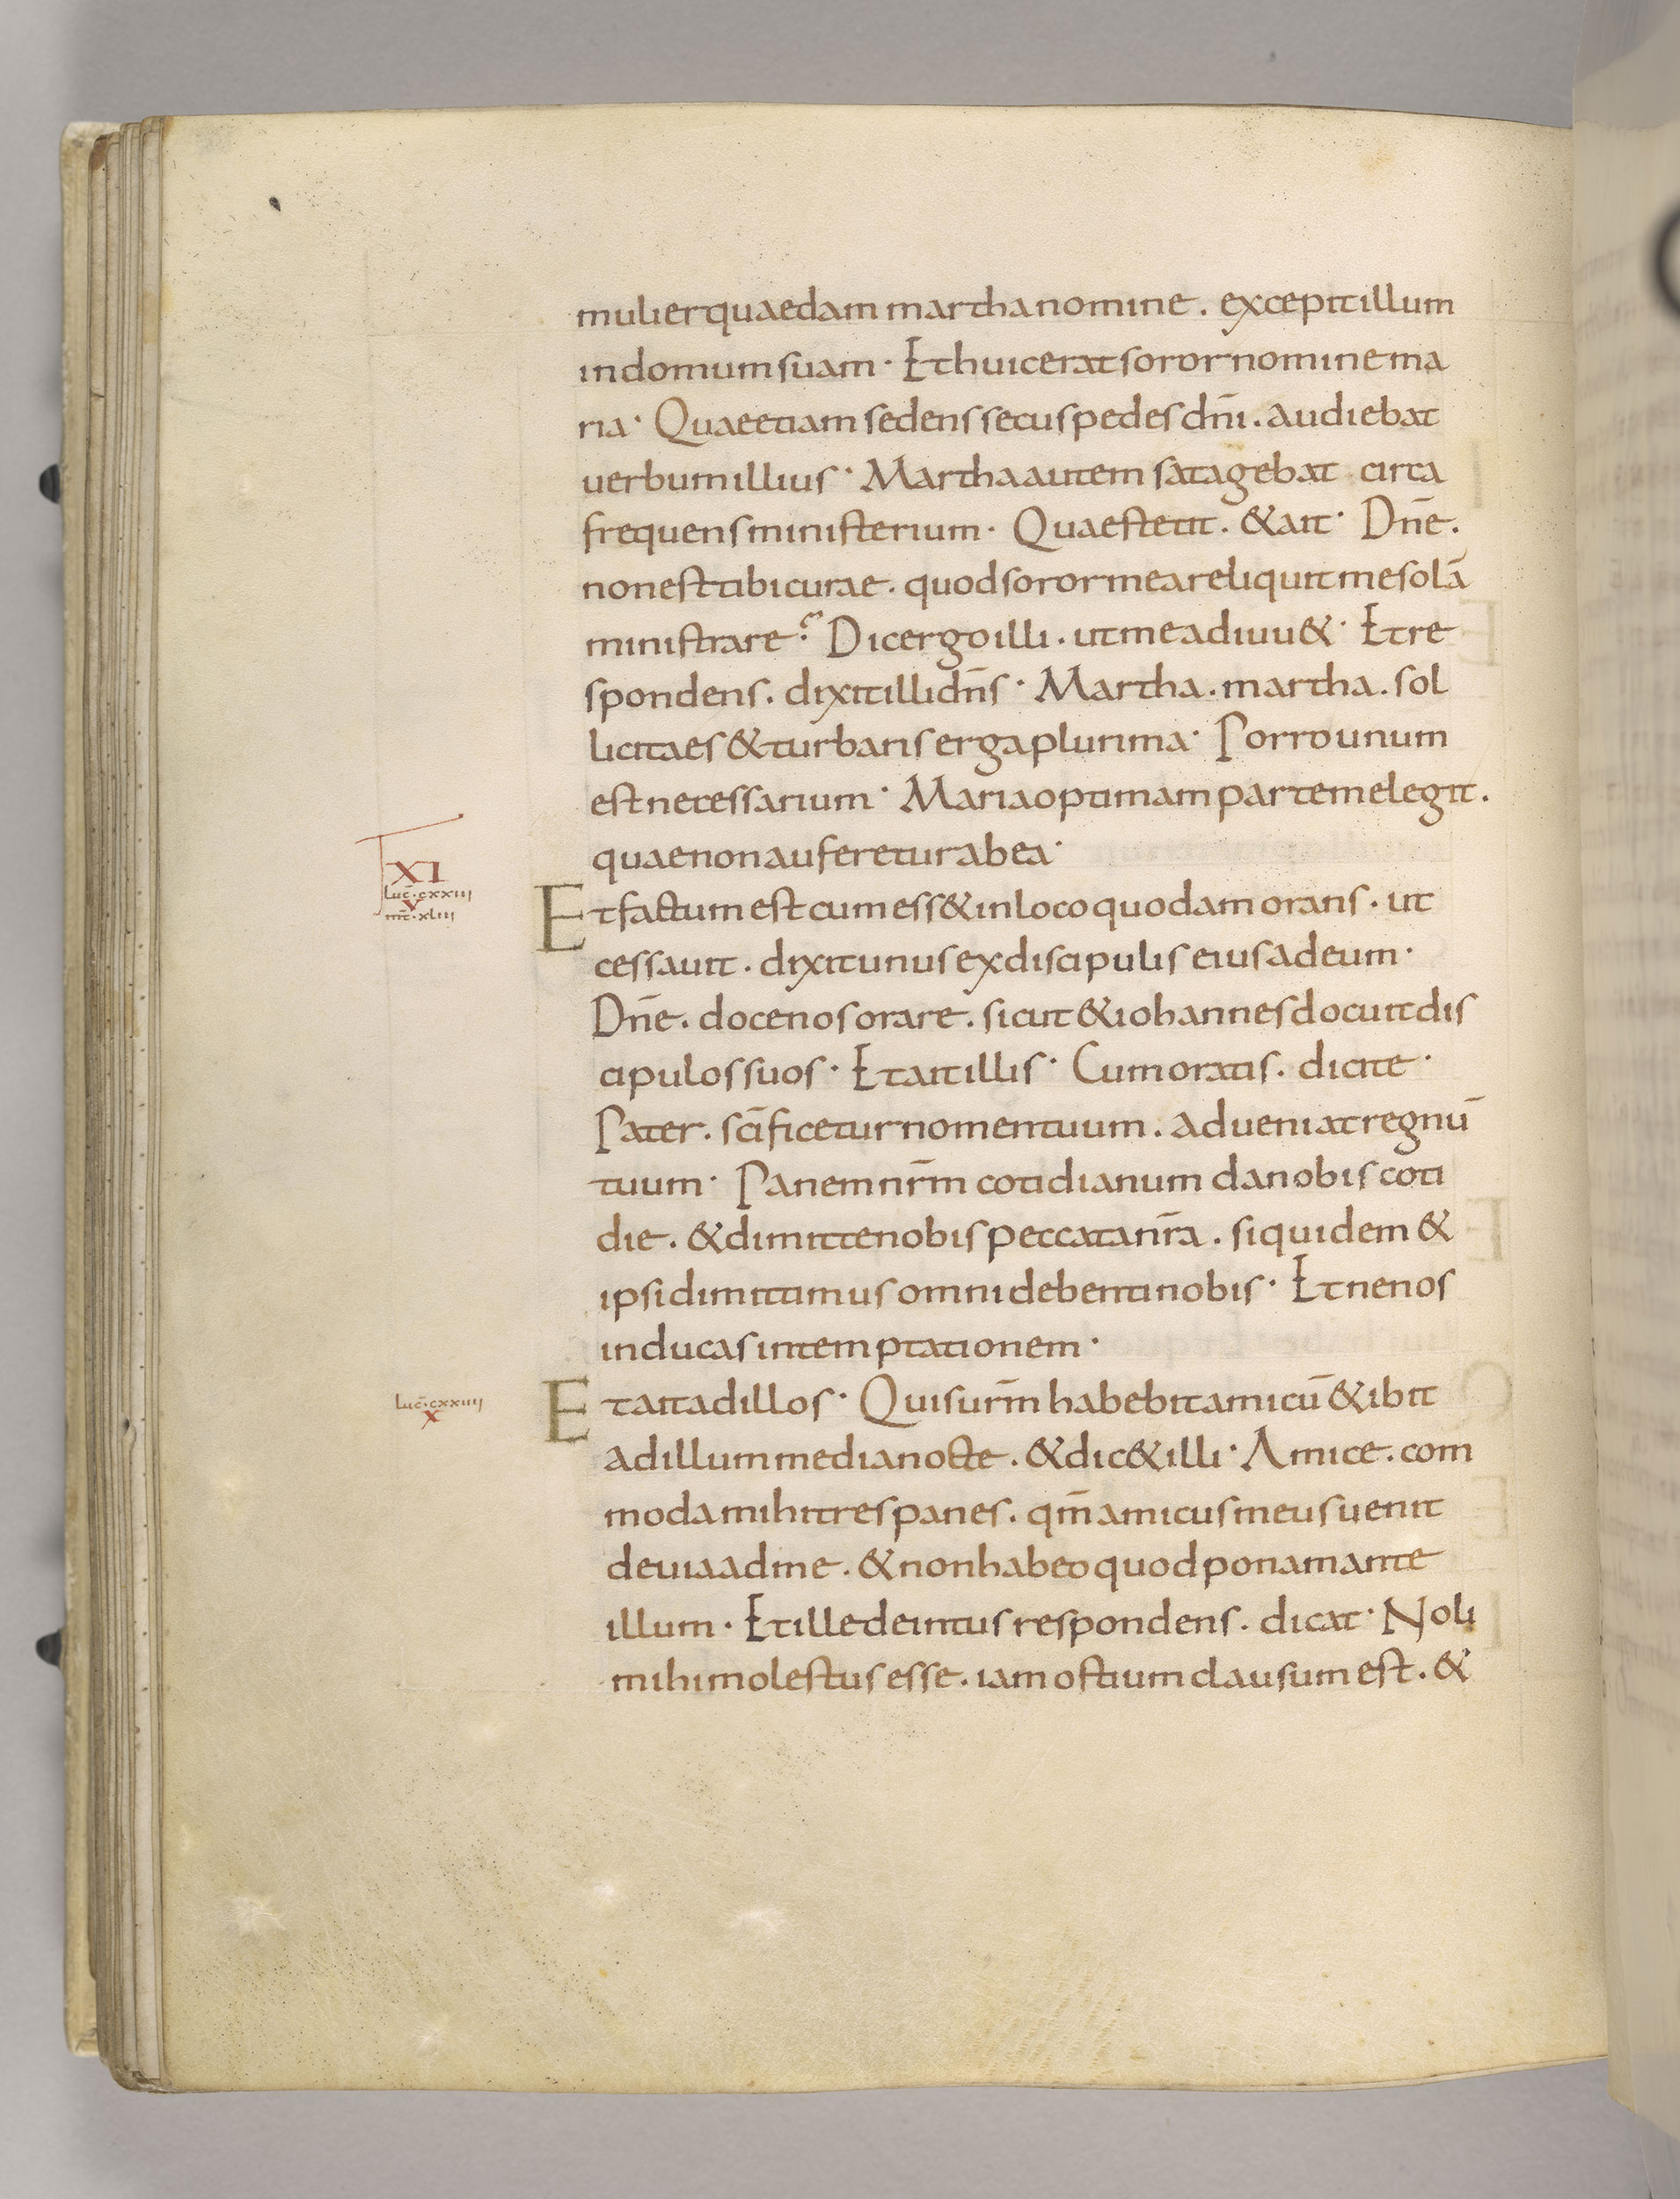 mulier quaedam martha nomine. excepit illum
in domum suam· Et huic erat soror nomine ma
ria· Quae etiam sedens secus pedes dn̄i. audiebat
uerbum illius· Martha autem satagebat circa
frequens ministerium· Quae stetit. & ait· Dn̄e.
non est tibi curae. quod soror mea reliquit me solā
ministrare? Dic ergo illi. ut me adiuu&· Et re
spondens. dixit illi dn̄s· Martha. martha. sol
licita es & turbaris erga plurima· Porro unum
est necessarium· Maria optimam partem elegit.
quae non auferetur ab ea·
XI
luc̄·cxxiii
v
mt̄·xliii
Et factum est cum ess& in loco quodam orans. ut
cessauit. dixit unus ex discipulis eius ad eum·
Dn̄e. doce nos orare. sicut & iohannes docuit dis
cipulos suos· Et ait illis· Cum oratis. dicite·
Pater. sc̄ificetur nomen tuum. adueniat regnū
tuum· Panem nr̄m cotidianum da nobis coti
die. & dimitte nobis peccata nr̄a. siquidem &
ipsi dimittimus omni debenti nobis· Et ne nos
inducas in temptationem·
luc̄·cxxiiii
x
Et ait ad illos· Quis ur̄m habebit amicū & ibit
ad illum media nocte. & dic& illi· Amice. com
moda mihi tres panes. qm̄ amicus meus uenit
de uia ad me. & non habeo quod ponam ante
illum· Et ille deintus respondens. dicat· Noli
mihi molestus esse. iam ostium clausum est. &